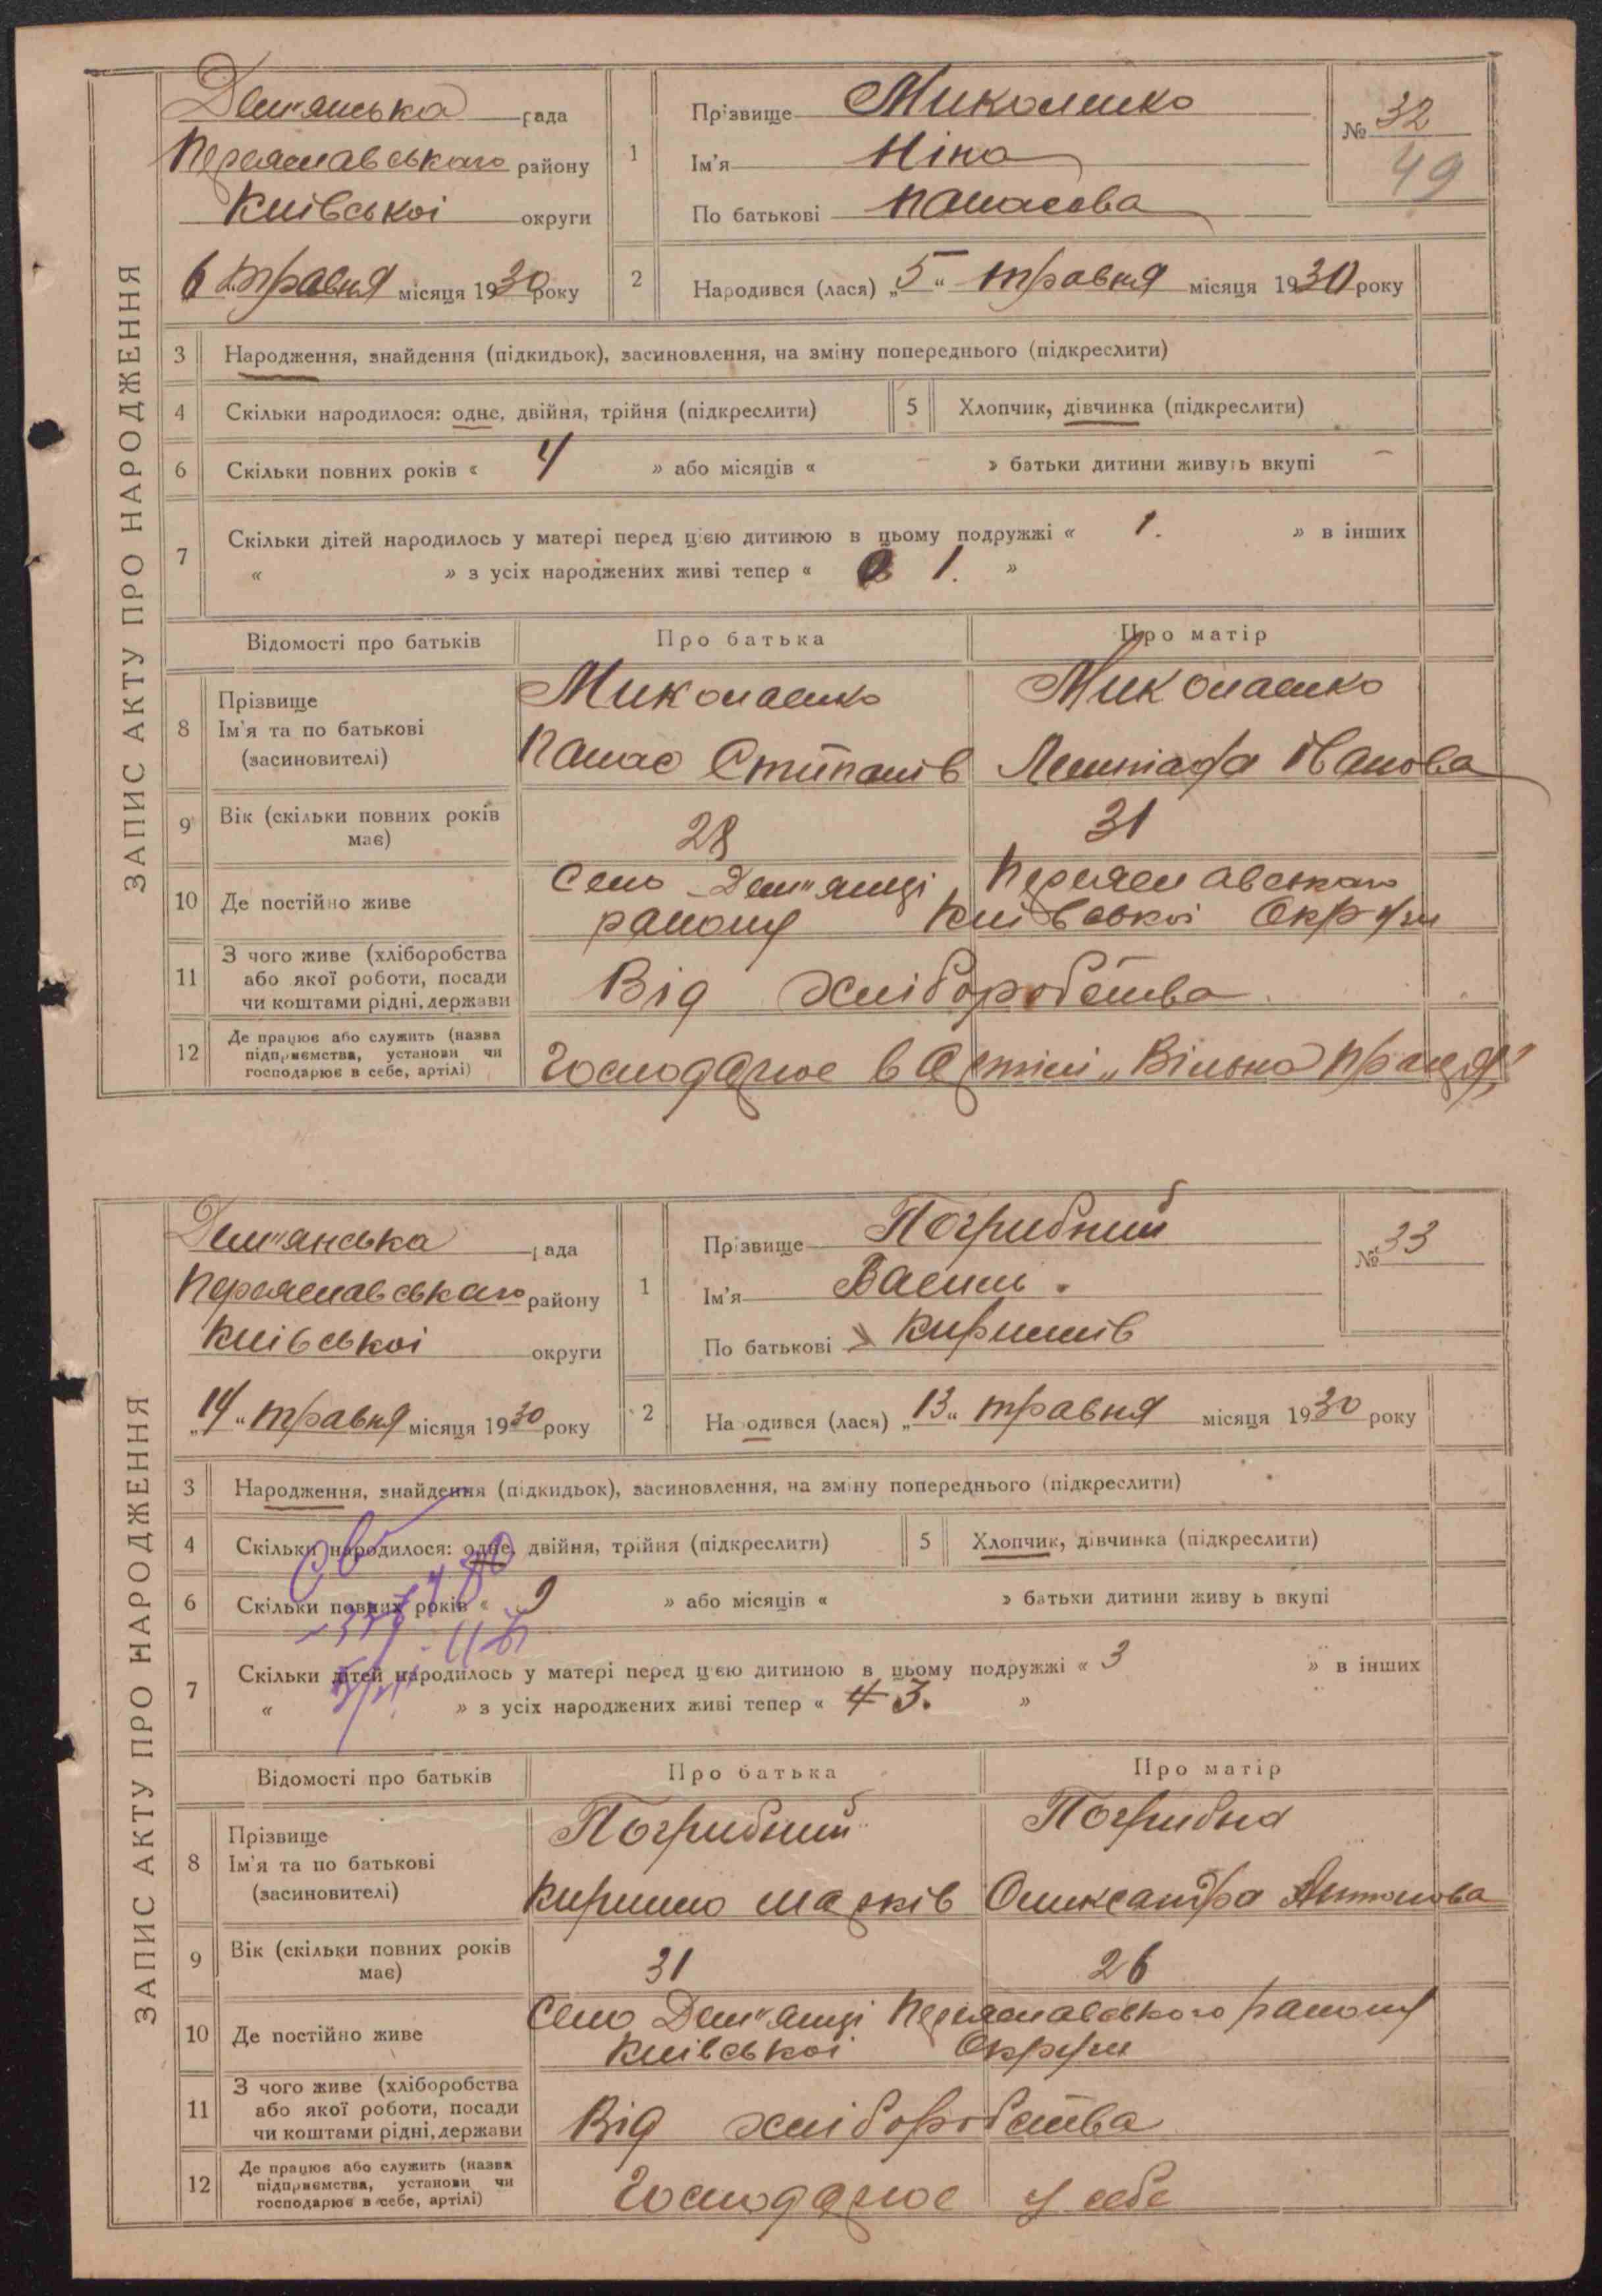 ЗАПИС АКТУ ПРО НАРОДЖЕННЯ
Дем'янська рада
Переяславського району
Київської округи
6 травня місяця 1930 року
1
Прізвище Миколенко
Ім'я Ніна
По батькові Панасова
№ 32
49
2
Народився (лася) „5“ травня місяця 1930 року
3 Народження, знайдення (підкидьок), засиновлення, на зміну попереднього (підкреслити)
4 Скільки народилося: одне, двійня, трійня (підкреслити) 5 Хлопчик, дівчинка (підкреслити)
6 Скільки повних років « 4 » або місяців « – » батьки дитини живуть вкупі –
7 Скільки дітей народилось у матері перед цією дитиною в цьому подружжі « 1. » в інших
« » з усіх народжених живі тепер « 1. »
Відомості про батьків Про батька Про матір
8 Прізвище
Ім'я та по батькові
(засиновителі)
Миколаенко Миколаенко
Панас Степанів Іванова
9 Вік (скільки повних років має) 28 31
10 Де постійно живе Село Дем'янці Переяславського
району Київської Округи
11 З чого живе (хліборобства
або якої роботи, посади
чи коштами рідні, держави
Від хліборобства
12 Де працює або служить (назва
підприємства, установи чи
господарює в себе, артілі)
Господарює в Артілі „Вільна Праця“
ЗАПИС АКТУ ПРО НАРОДЖЕННЯ
Дем'янська рада
Переяславського району
Київської округи
„14“ травня місяця 1930 року
1
Прізвище Погрибний
Ім'я Василь.
По батькові Кирилів
№ 33
2
Народився (лася) „13“ травня місяця 1930 року
3 Народження, знайдення (підкидьок), засиновлення, на зміну попереднього (підкреслити)
4 Скільки народилося: одне, двійня, трійня (підкреслити) 5 Хлопчик, дівчинка (підкреслити)
6 Скільки повних років « 9 » або місяців « » батьки дитини живу ь вкупі
7 Скільки дітей народилось у матері перед цією дитиною в цьому подружжі « 3 » в інших
« » з усіх народжених живі тепер « 4 3. »
Відомості про батьків Про батька Про матір
8 Прізвище
Ім'я та по батькові
(засиновителі)
Погрибний Погрибна
Кирило Марків Олександра Антонова
9 Вік (скільки повних років має) 31 26
10 Де постійно живе Село Дем'янці Переяславського району
Київської Округи
11 З чого живе (хліборобства
або якої роботи, посади
чи коштами рідні, держави
Від хліборобства
12 Де працює або служить (назва
підприємства, установи чи
господарює в себе, артілі)
Господарює у себе